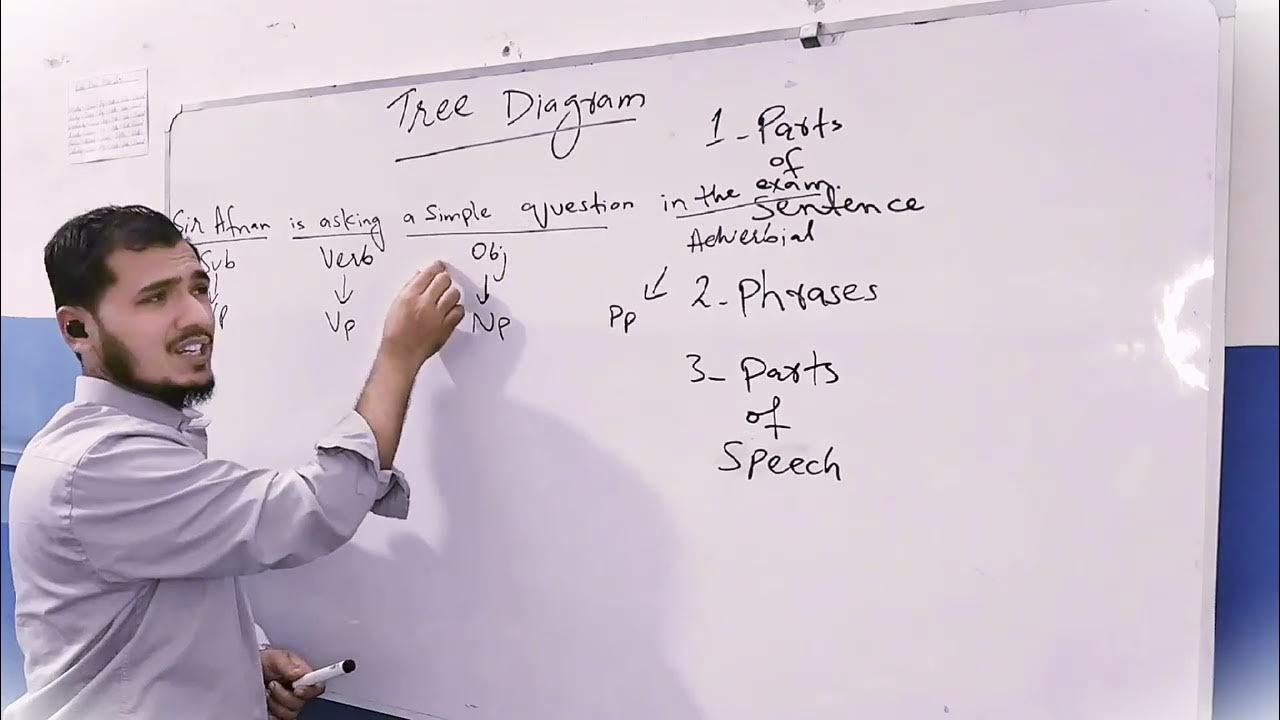 Tree Diagram
1 - Parts
of
Sentence
Sir Afnan is asking a simple question in the exam.
Sub Verb Obj Adverbial
Vp Np Pp
2 - Phrases
3 - Parts
of
Speech